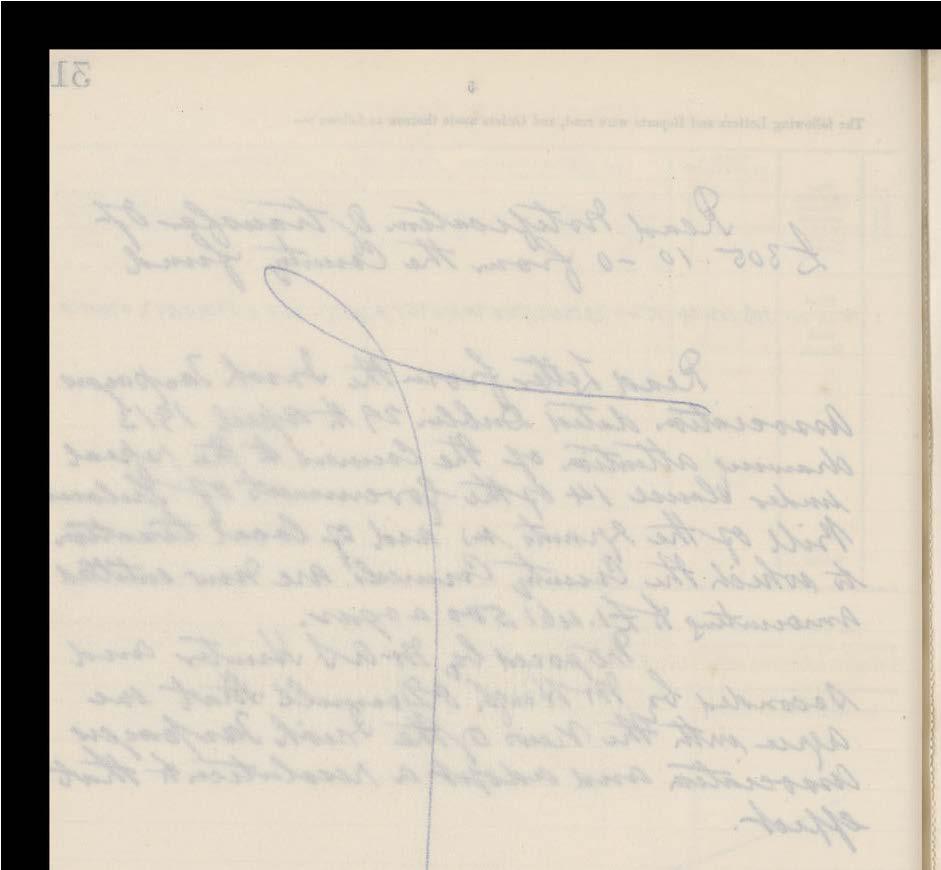 31
5
The following Letters and Reports were read, and Orders made thereon as follows :—
Read Notification of transfer of
£305. 10 - 0 from the County fund
Read letter from the Irish Taxpayers
Association dated Dublin 29th April 1913
drawing attention of the Council to the repeal
under Clause 14 of the Government of Ireland
Bill of the Grants in aid of local taxation
to which the County Councils are now entitled
amounting to £1,461,500 a year.
Proposed by Hunter and
Seconded by Mr Hugh O'Donnell that we
agree with the views of the Irish Taxpayers
Association and adopt a resolution to that
effect.